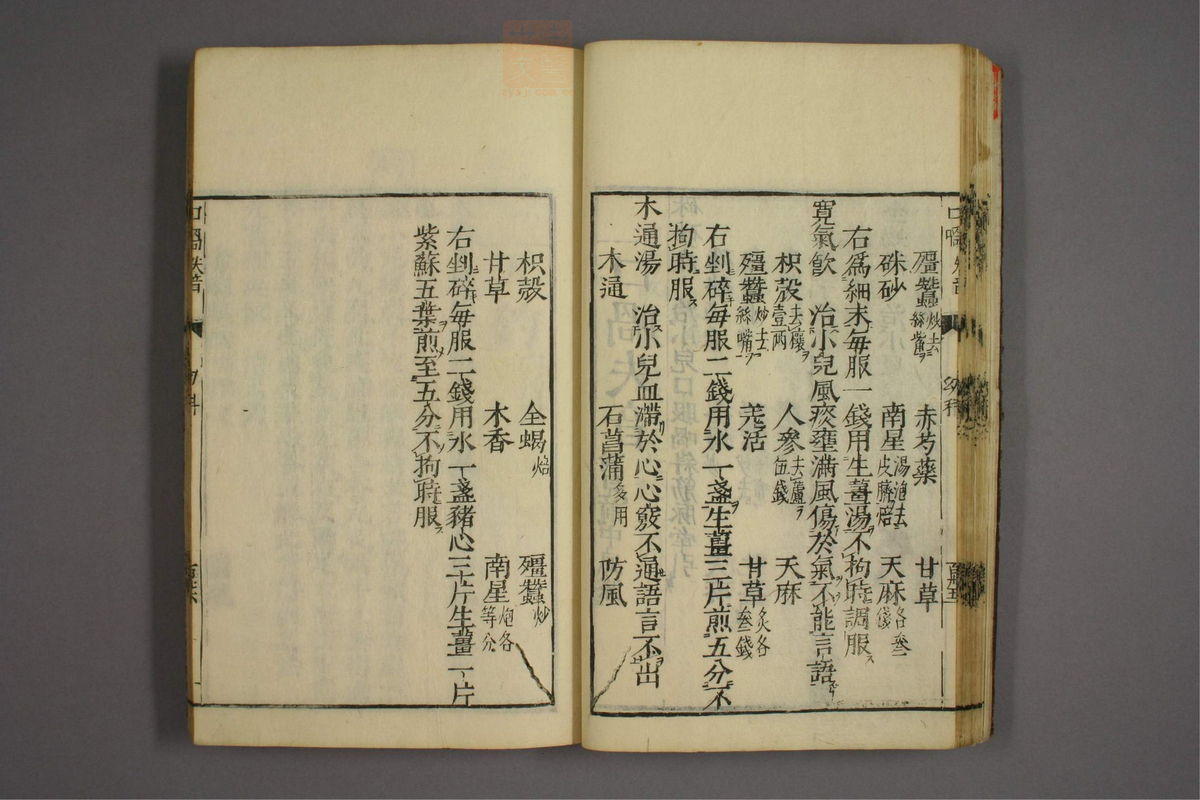 殭蠶炒去絲嘴ヲ 赤芍藥 甘草
硃砂 南星湯泡去皮臍焙 天麻各叁錢
右為細末毎服一錢用生薑湯不拘時調服ス
寛氣飮 治小兒風痰壅滿風傷於氣不能言語
枳殼去穰ヲ壹兩 人參去蘆ヲ伍錢 天麻
殭蠶炒去絲嘴ヲ 羗活 甘草炙各叁錢
右剉碎毎服二錢用水一盞生薑三片煎五分不
拘時服ス
木通湯 治小兒血滯於心心竅不通語言不出
木通 石菖蒲多用 防風
枳殼 全蝎焙 殭蠶炒
甘草 木香 南星炮各等分
右剉碎毎服二錢用水一盞豬心三片生薑一片
紫蘇五葉煎至五分不拘時服ス
口喎 失音
幼科